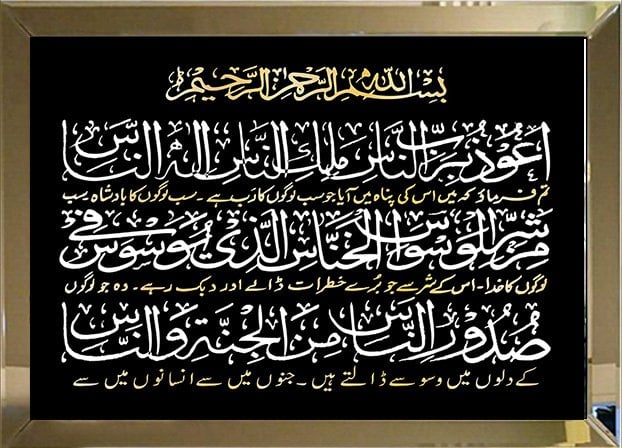 بسم الله الرحمن الرحيم
اعوذ برب الناس ملك الناس اله الناس
تم فرماؤ کہ میں اس کی پناہ میں آیا جو سب لوگوں کا رب ہے ۔ سب لوگوں کا بادشاہ سب
من شر الوسواس الخناس الذي يوسوس في
لوگوں کا خدا ۔ اس کے شر سے جو بُرے خطرات ڈالے اور دبک رہے ۔ وہ جو لوگوں
صدور الناس من الجنة والناس
کے دلوں میں وسوسے ڈالتے ہیں ۔ جنوں میں سے انسانوں میں سے